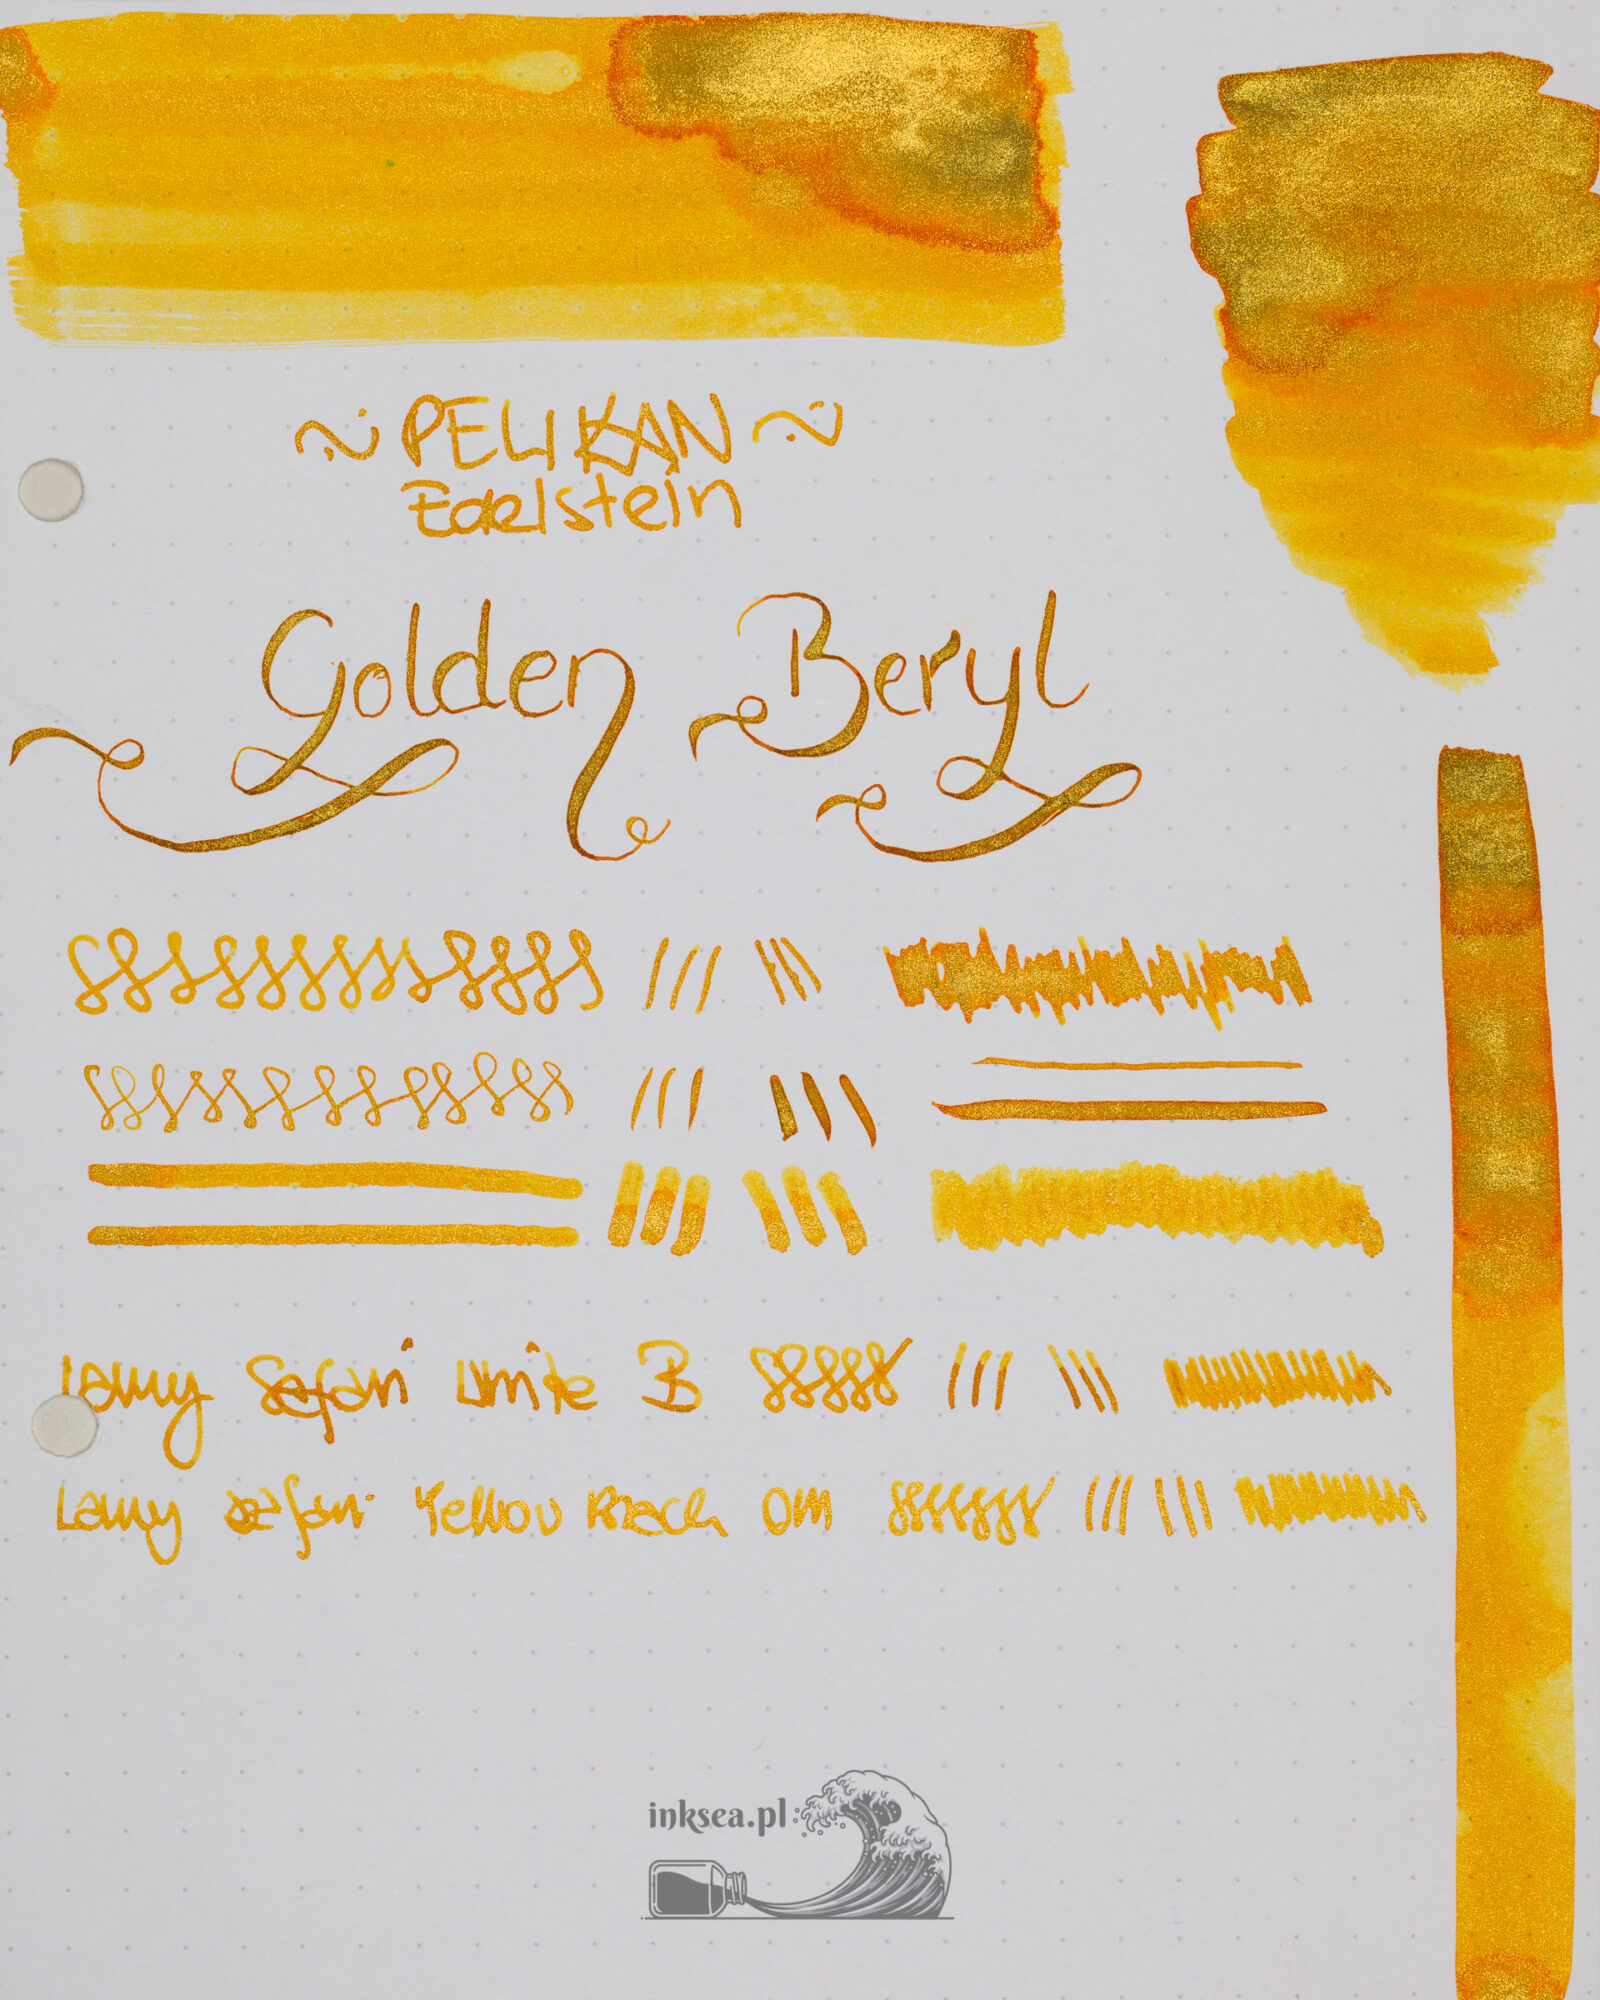 ~ PELIKAN ~
Edelstein
Golden Beryl
Lamy Safari White B
Lamy Safari Yellow Black OM
inksea.pl